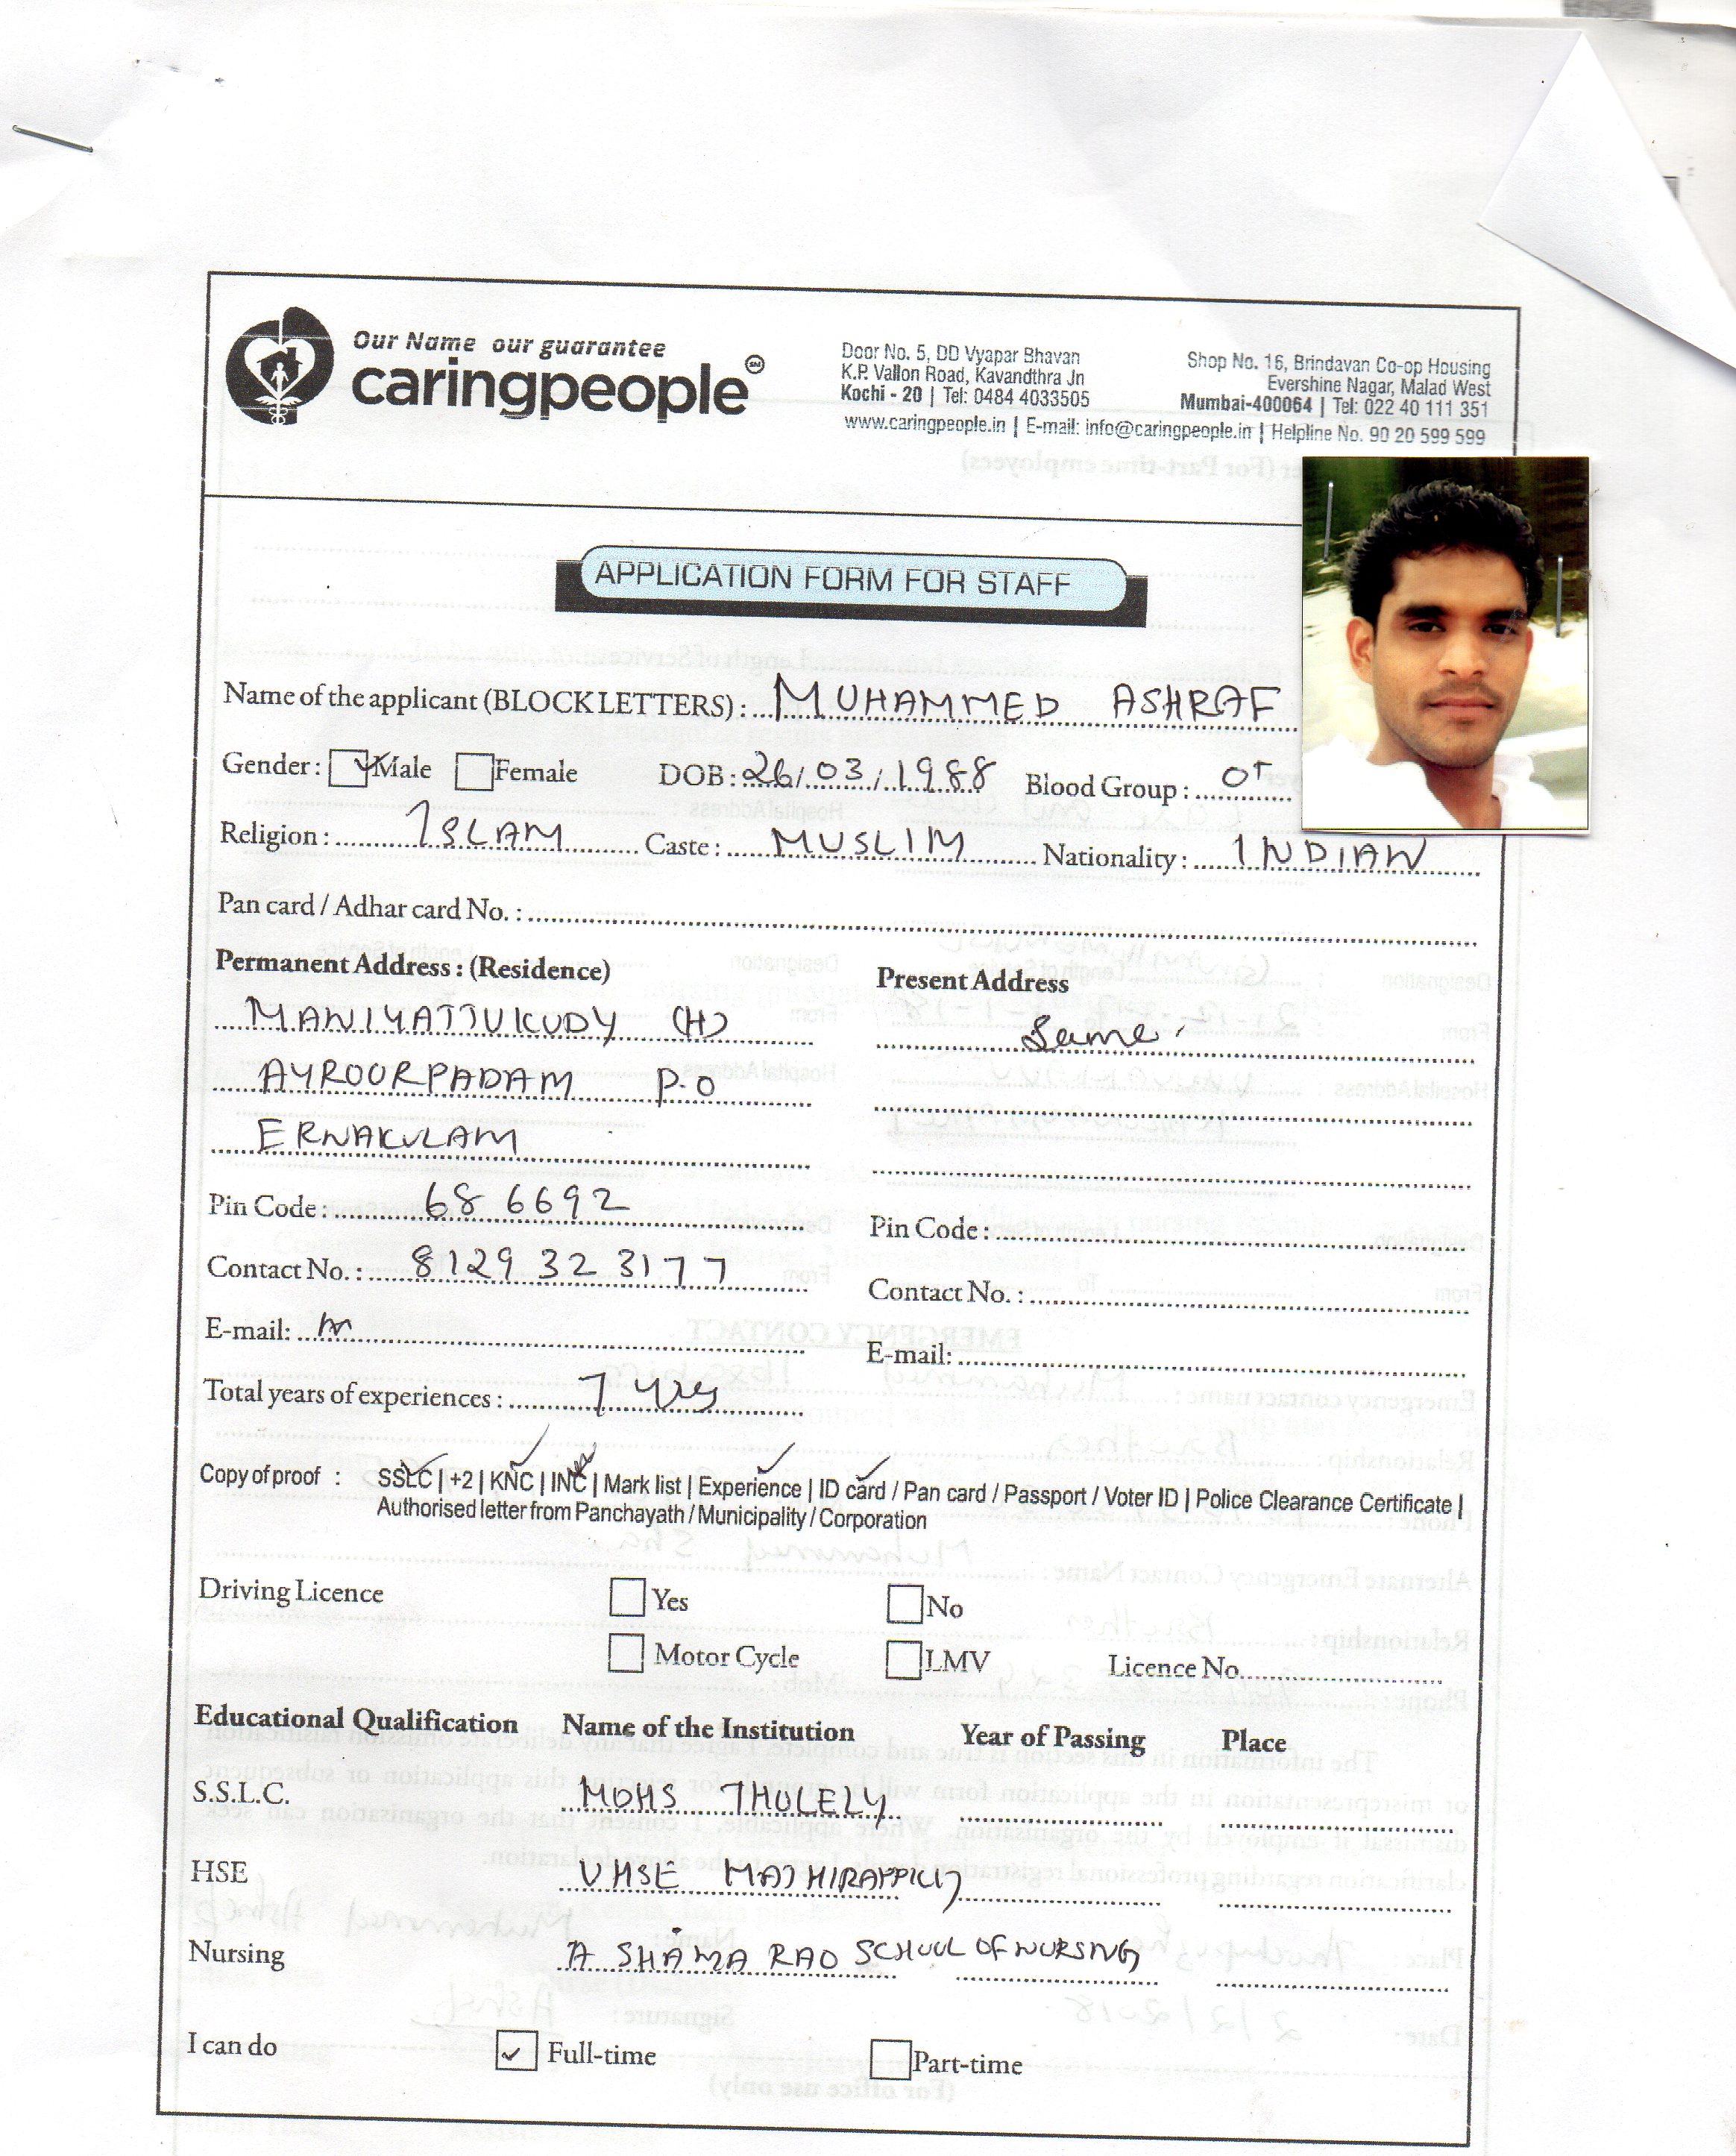 Our Name our guarantee
caringpeople SM
Door No. 5, DD Vyapar Bhavan
K.P. Vallon Road, Kavandthra Jn
Kochi - 20 | Tel: 0484 4033505
Shop No. 16, Brindavan Co-op Housing
Evershine Nagar, Malad West
Mumbai-400064 | Tel: 022 40 111 351
www.caringpeople.in | E-mail: info@caringpeople.in | Helpline No. 90 20 599 599
APPLICATION FORM FOR STAFF
Name of the applicant (BLOCK LETTERS) : MUHAMMED ASHRAF
Gender : Male Female DOB : 26/03/1988 Blood Group : O+
Religion : ISLAM Caste : MUSLIM Nationality : INDIAN
Pan card / Adhar card No. :
Permanent Address : (Residence) Present Address
MANIYATTUKUDY (H) Same
AYROORPADAM P.O
ERNAKULAM
Pin Code : 68 6692 Pin Code :
Contact No. : 8129 32 3177 Contact No. :
E-mail: E-mail:
Total years of experiences : 7 yrs
Copy of proof : SSLC | +2 | KNC | INC | Mark list | Experience | ID card / Pan card / Passport / Voter ID | Police Clearance Certificate |
Authorised letter from Panchayath / Municipality / Corporation
Driving Licence Yes No
Motor Cycle LMV Licence No.
Educational Qualification Name of the Institution Year of Passing Place
S.S.L.C. MDHS THOLELY
HSE VHSE MATHIRAPPILLY
Nursing A SHAMA RAO SCHOOL OF NURSING
I can do Full-time Part-time